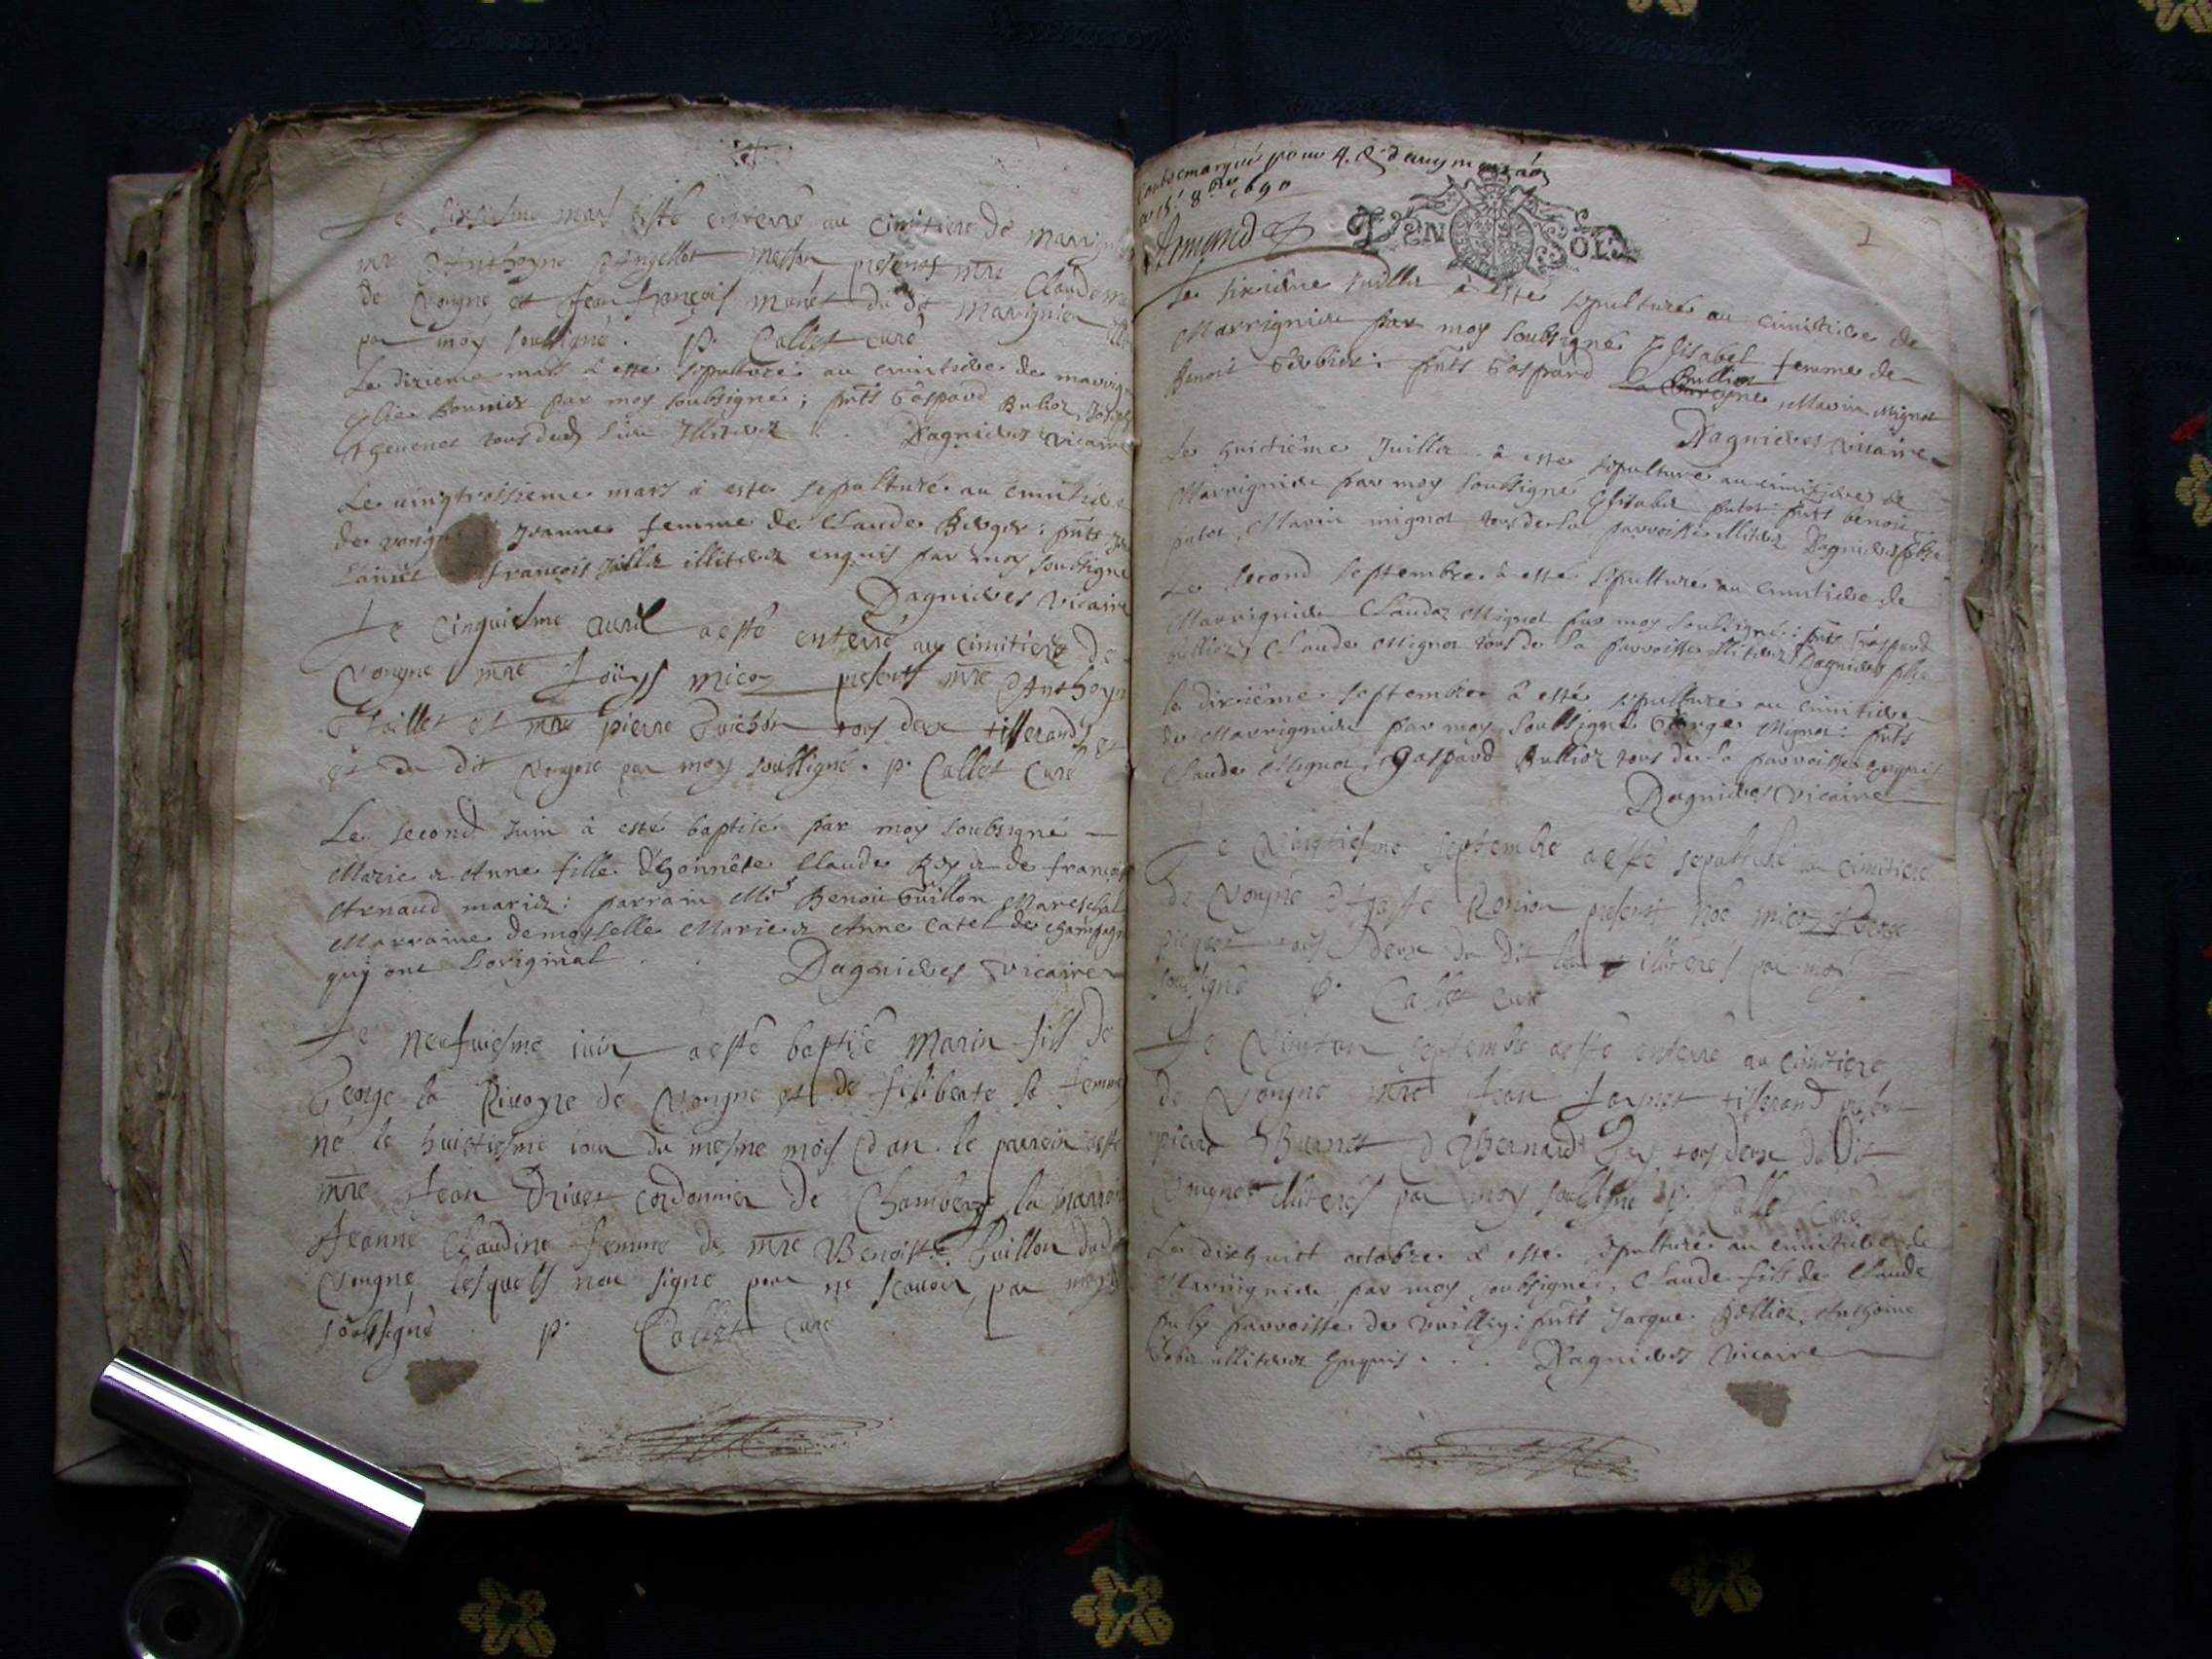 Le sixiesme mars aesté enterré au cimitiere de Marrigni
mre Anthoyne presents mre Claude
de Vongne et Jean françois du dit Marrignieu
par moy soussigné. p. Callet curé
Le dixieme mars à esté sepulturé au cimitiere de marrign
par moy soubsigné; pnts Gaspard Bulioz,
tous dud lieu Illiterez . Dagnieres vicaire
Le uingtroisieme mars à esté sepulturé au cimitiere
de vongn Jeanne femme de Claude Berger: pnts
françois illiterez enquis par moy soubsigné
Dagnieres vicaire
Le cinquiesme auril aesté enterré au cimitiere de
Vongne mre Löuys micoz presents mre Anthoyn
et mre pierre Guichon tous deux tisserands
et du dit Vongne par moy soussigné. p. Callet Curé
Le second Juin à esté baptisée par moy soubsigné
Marie Anne fille d'honnête Claude Rey & de françoi
Arnaud mariez: parrain Mr Benoit Guillon Mareschal
Marraine demoyselle Marie Anne Catel de champagn
quy ont L'original . . Dagnieres vicaire
Le neufuiesme iuin aesté baptisé Marin fils de
George la Riuoyre de Vongne et de filiberte sa femme
né le huictiesme iour du mesme mois & an. le parrein aesté
mre Jean Driuet cordonnier de Chambery la marrein
Jeanne Claudine femme de mre Benoist Guillon dud
Vongne, lesquels non signé pour ne scauoir, par moy
soussigné . p. Callet curé
Contremarqué pour
ce 15e 8bre 1690
Armand
DEN SOLZ
2
Le sixiême Juillet à esté sepulturée au cimitiere de
Marrignieu par moy soubsigné Elisabet femme de
Benoit : pnts Gaspard Bullioz, Marin Mignot
Dagnieres vicaire
Le huictiême Juillet à esté sepulturé au cimitiere de
Marrignieu par moy soubsigné putot pnts benoit
putot, Marin mignot tous de la parroisse illiterez Dagnieres
Le second septembre à esté sepulturé au cimitiere de
Marrignieu Claudaz Mignot par moy soubsigné: pnts Gaspard
bullioz, Claude Mignot tous de la parroisse illiterez Dagnieres pbre
le dixiême septembre à esté sepulturé au cimitiere
de Marrignieu par moy soubsigné George Mignot: pnts
Claude Mignot, Gaspard Bullioz tous de la parroisse enquis
Dagnieres vicaire
Le Vingtiesme septembre aesté sepulturé au cimitiere
de Vongne presens micoz
tous deux du dit lieu illiterés par moy
soussigné p. Callet curé
Le Vingtun septembre aesté enterré au cimitiere
de Vongne mre Jean tisserand presens
pierre & Bernard tous deux du dit
Vongne illiterés par moy soussigné p. Callet curé
Le dixhuict octobre à esté sepulturé au cimitiere de
Marrignieu par moy soubsigné, Claude fils de Claude
parroisse de : pnts Jacque Bollioz, Anthoine
illiterez Enquis . . . Dagnieres vicaire